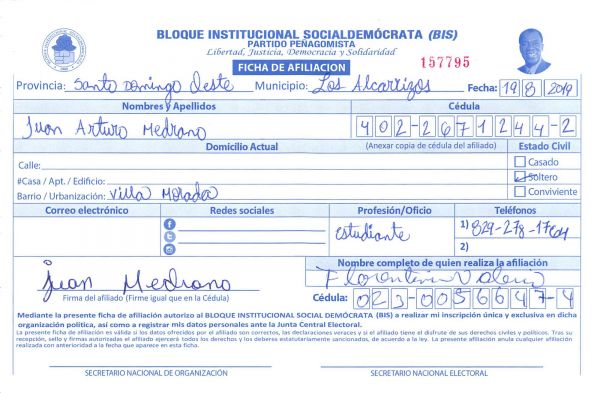 BLOQUE INSTITUCIONAL SOCIALDEMÓCRATA (BIS)
PARTIDO PEÑAGOMISTA
Libertad, Justicia, Democracia y Solidaridad
FICHA DE AFILIACION
157795
Provincia: Santo Domingo Oeste Municipio: Los Alcarrizos Fecha: 19 8 2019
Nombres y Apellidos Cédula
Juan Arturo Medrano 402-2671244-2
Domicilio Actual (Anexar copia de cédula del afiliado) Estado Civil
Calle: Casado
#Casa / Apt. / Edificio: Soltero
Barrio / Urbanización: Villa Morada Conviviente
Correo electrónico Redes sociales Profesión/Oficio Teléfonos
estudiante 1) 829-278-17
2)
Nombre completo de quien realiza la afiliación
Juan Medrano Florentino Valerio
Firma del afiliado (Firme igual que en la Cédula) Cédula: 023-0056647-4
Mediante la presente ficha de afiliación autorizo al BLOQUE INSTITUCIONAL SOCIAL DEMÓCRATA (BIS) a realizar mi inscripción única y exclusiva en dicha
organización política, así como a registrar mis datos personales ante la Junta Central Electoral.
La presente ficha de afiliación es válida si los datos ofrecidos por el afiliado son correctos, las declaraciones veraces y si el afiliado tiene el disfrute de sus derechos civiles y políticos. Tras su
recepción, sello y firmas autorizadas el afiliado ejercerá todos los derechos y los deberes estatutariamente sancionados, de acuerdo a la ley. La presente afiliación anula cualquier afiliación
realizada con anterioridad a la fecha que aparece en esta ficha.
SECRETARIO NACIONAL DE ORGANIZACIÓN SECRETARIO NACIONAL ELECTORAL